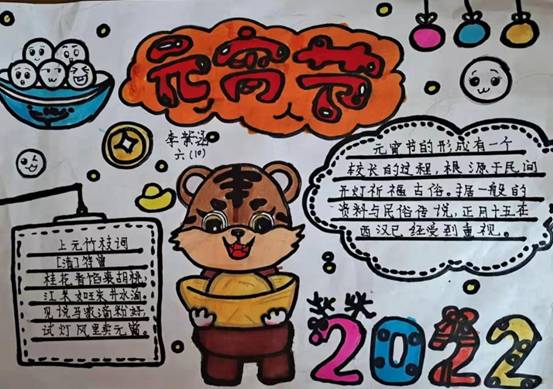 元宵节
李紫涵
六(10)
元宵节的形成有一个
较长的过程,根源于民间
开灯祈福古俗。据一般的
资料与民俗传说,正月十五在
西汉已经受到重视。
上元竹枝词
[清]符曾
桂花香馅裹胡桃
江米如珠井水淘
见说马家滴粉好
试灯风里卖元宵
2022